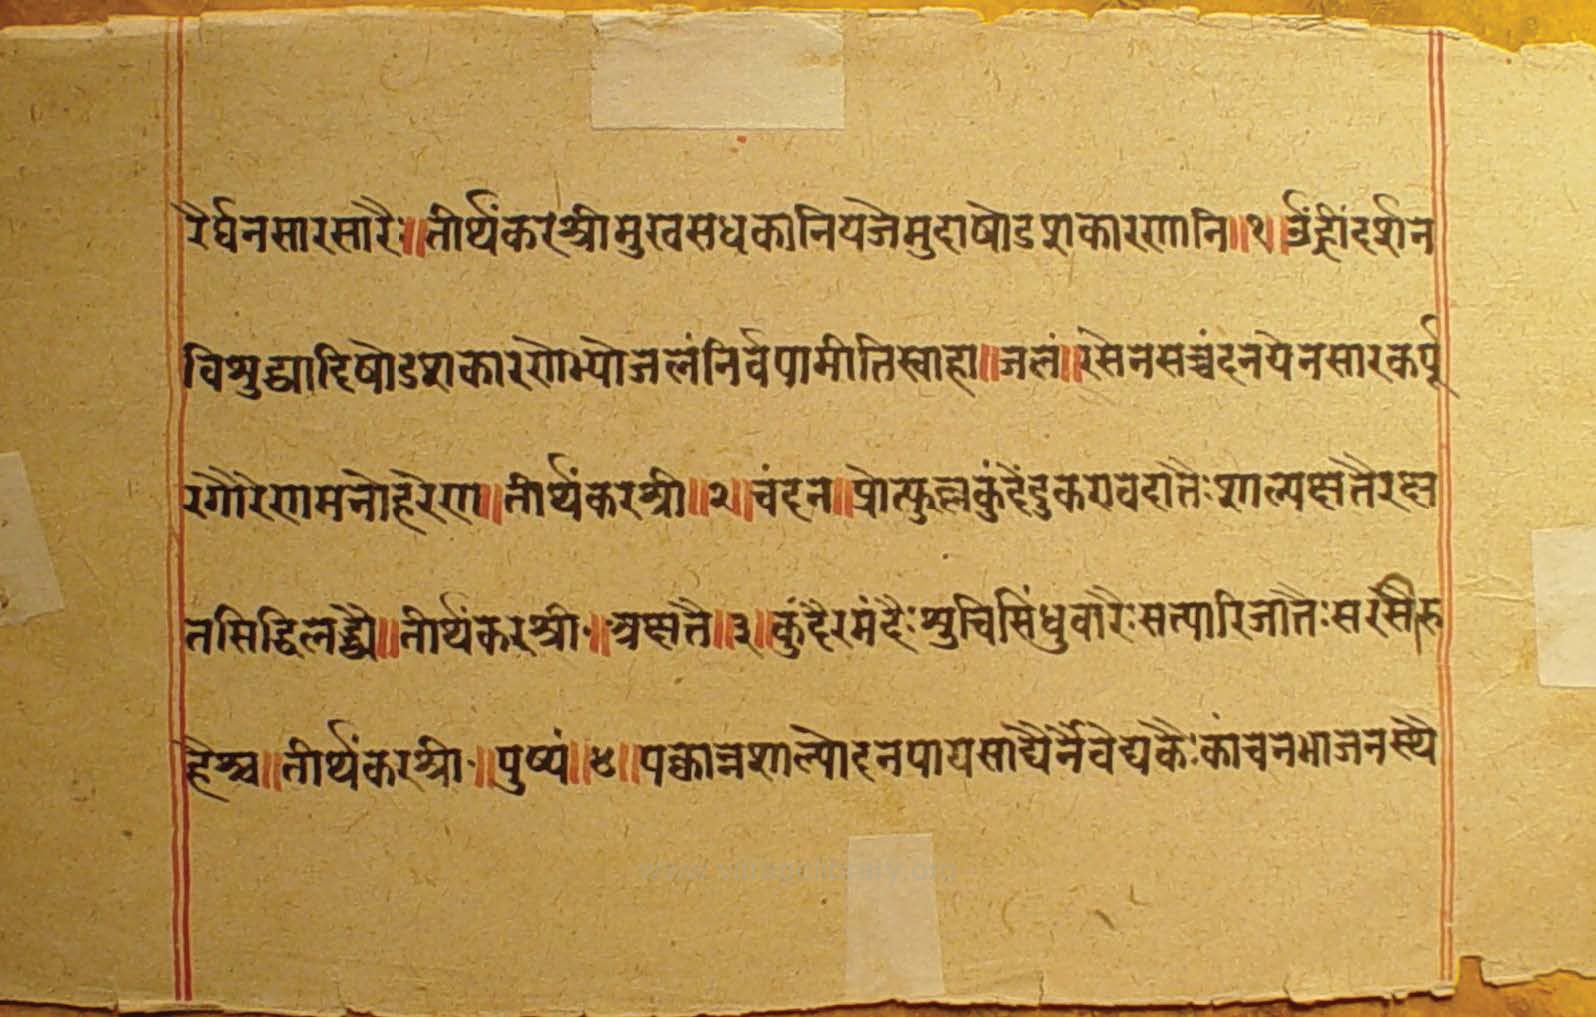 रैर्घनसारसारैः॥तीर्थंकरश्रीमुखसधकानियजेमुदाषोडशकारणानि॥१॥ॐह्रींदर्शन
विशुद्ध्यादिषोडशकारणेभ्योजलंनिर्वपामीतिस्वाहा॥जलं॥रसेनसच्चंदनयेनसारकर्पू
रगौरेणमनोहरेण॥तीर्थंकरश्री॥२॥चंदन॥प्रोत्फुल्लकुंदेंदुकरावदातैःशाल्यक्षतैरक्ष
तसिद्धिलब्ध्यै॥तीर्थंकरश्री॰॥अक्षतै॥३॥कुंदैरमंदैःशुचिसिंधुवारैःसत्पारिजातैःसरसीरु
हैश्च॥तीर्थंकरश्री॰॥पुष्पं॥४॥पक्वान्नशाल्योदनपायसाद्यैर्नैवेद्यकैःकांचनभाजनस्थै
www.sdragolibrary.org